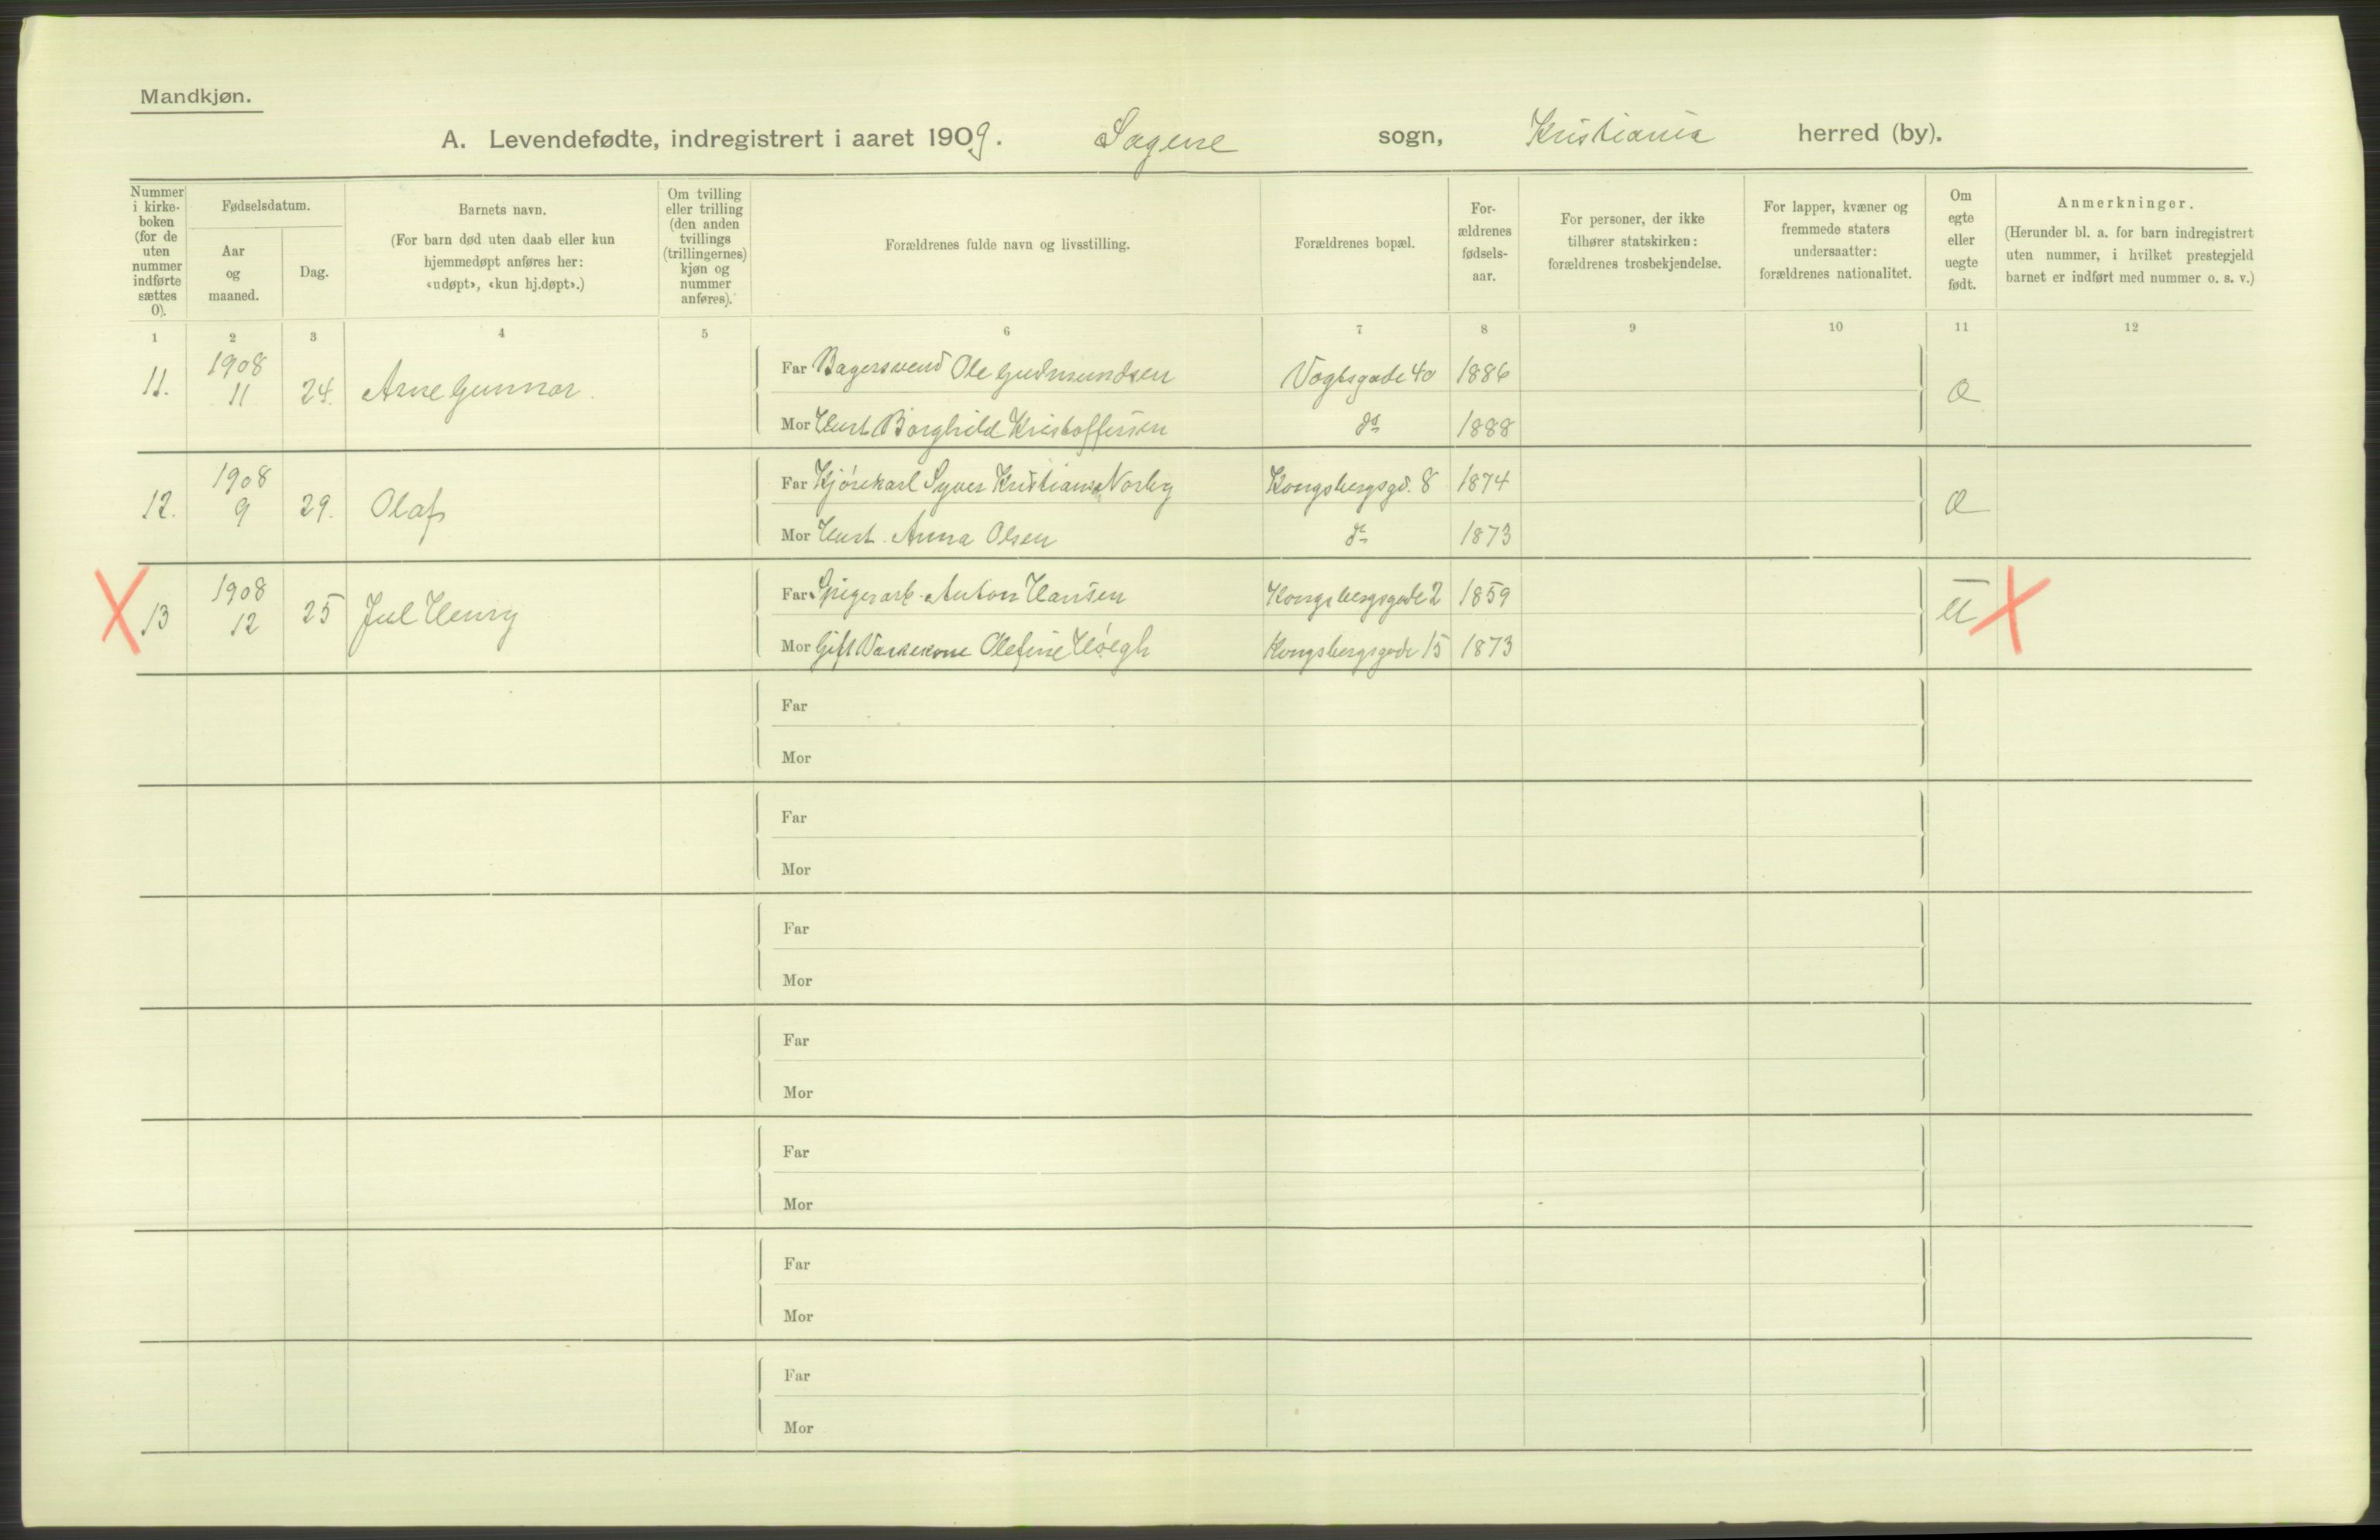 Mandkjøn.
A. Levendefødte, indregistrert i aaret 1909. Sagene sogn, Kristiania herred (by).
Nummer i kirke-boken (for de uten nummer indførte sættes 0).
Fødselsdatum.
Aar og maaned.
Dag.
Barnets navn.
(For barn død uten daab eller kun hjemmedøpt anføres her: «udøpt», «kun hj.døpt».)
Om tvilling eller trilling (den anden tvillings (trillingernes) kjøn og nummer anføres).
Forældrenes fulde navn og livsstilling.
Forældrenes bopæl.
For-ældrenes fødsels-aar.
For personer, der ikke tilhører statskirken: forældrenes trosbekjendelse.
For lapper, kvæner og fremmede staters undersaatter: forældrenes nationalitet.
Om egte eller uegte født.
Anmerkninger.
(Herunder bl. a. for barn indregistrert uten nummer, i hvilket prestegjeld barnet er indført med nummer o. s. v.)
1 2 3 4 5 6 7 8 9 10 11 12
11. 1908 11 24. Arne Gunnar.
Far Bagersvend Ole Gudmundsen Vogtsgade 40 1886
Mor Hust. Borghild Kristoffersen do 1888
12. 1908 9 29. Olaf
Far Kjørekarl Syver Kristiansen Norby Kongsbergsgd. 8 1874
Mor Hust. Anna Olsen do 1873
13 1908 12 25 Jul Henry
Far Spigerarb. Anton Hansen Kongsbergsgade 2 1859 U
Mor Gift Vaskekone Olefine Høegh Kongsbergsgade 15 1873
Far
Mor
Far
Mor
Far
Mor
Far
Mor
Far
Mor
Far
Mor
Far
Mor